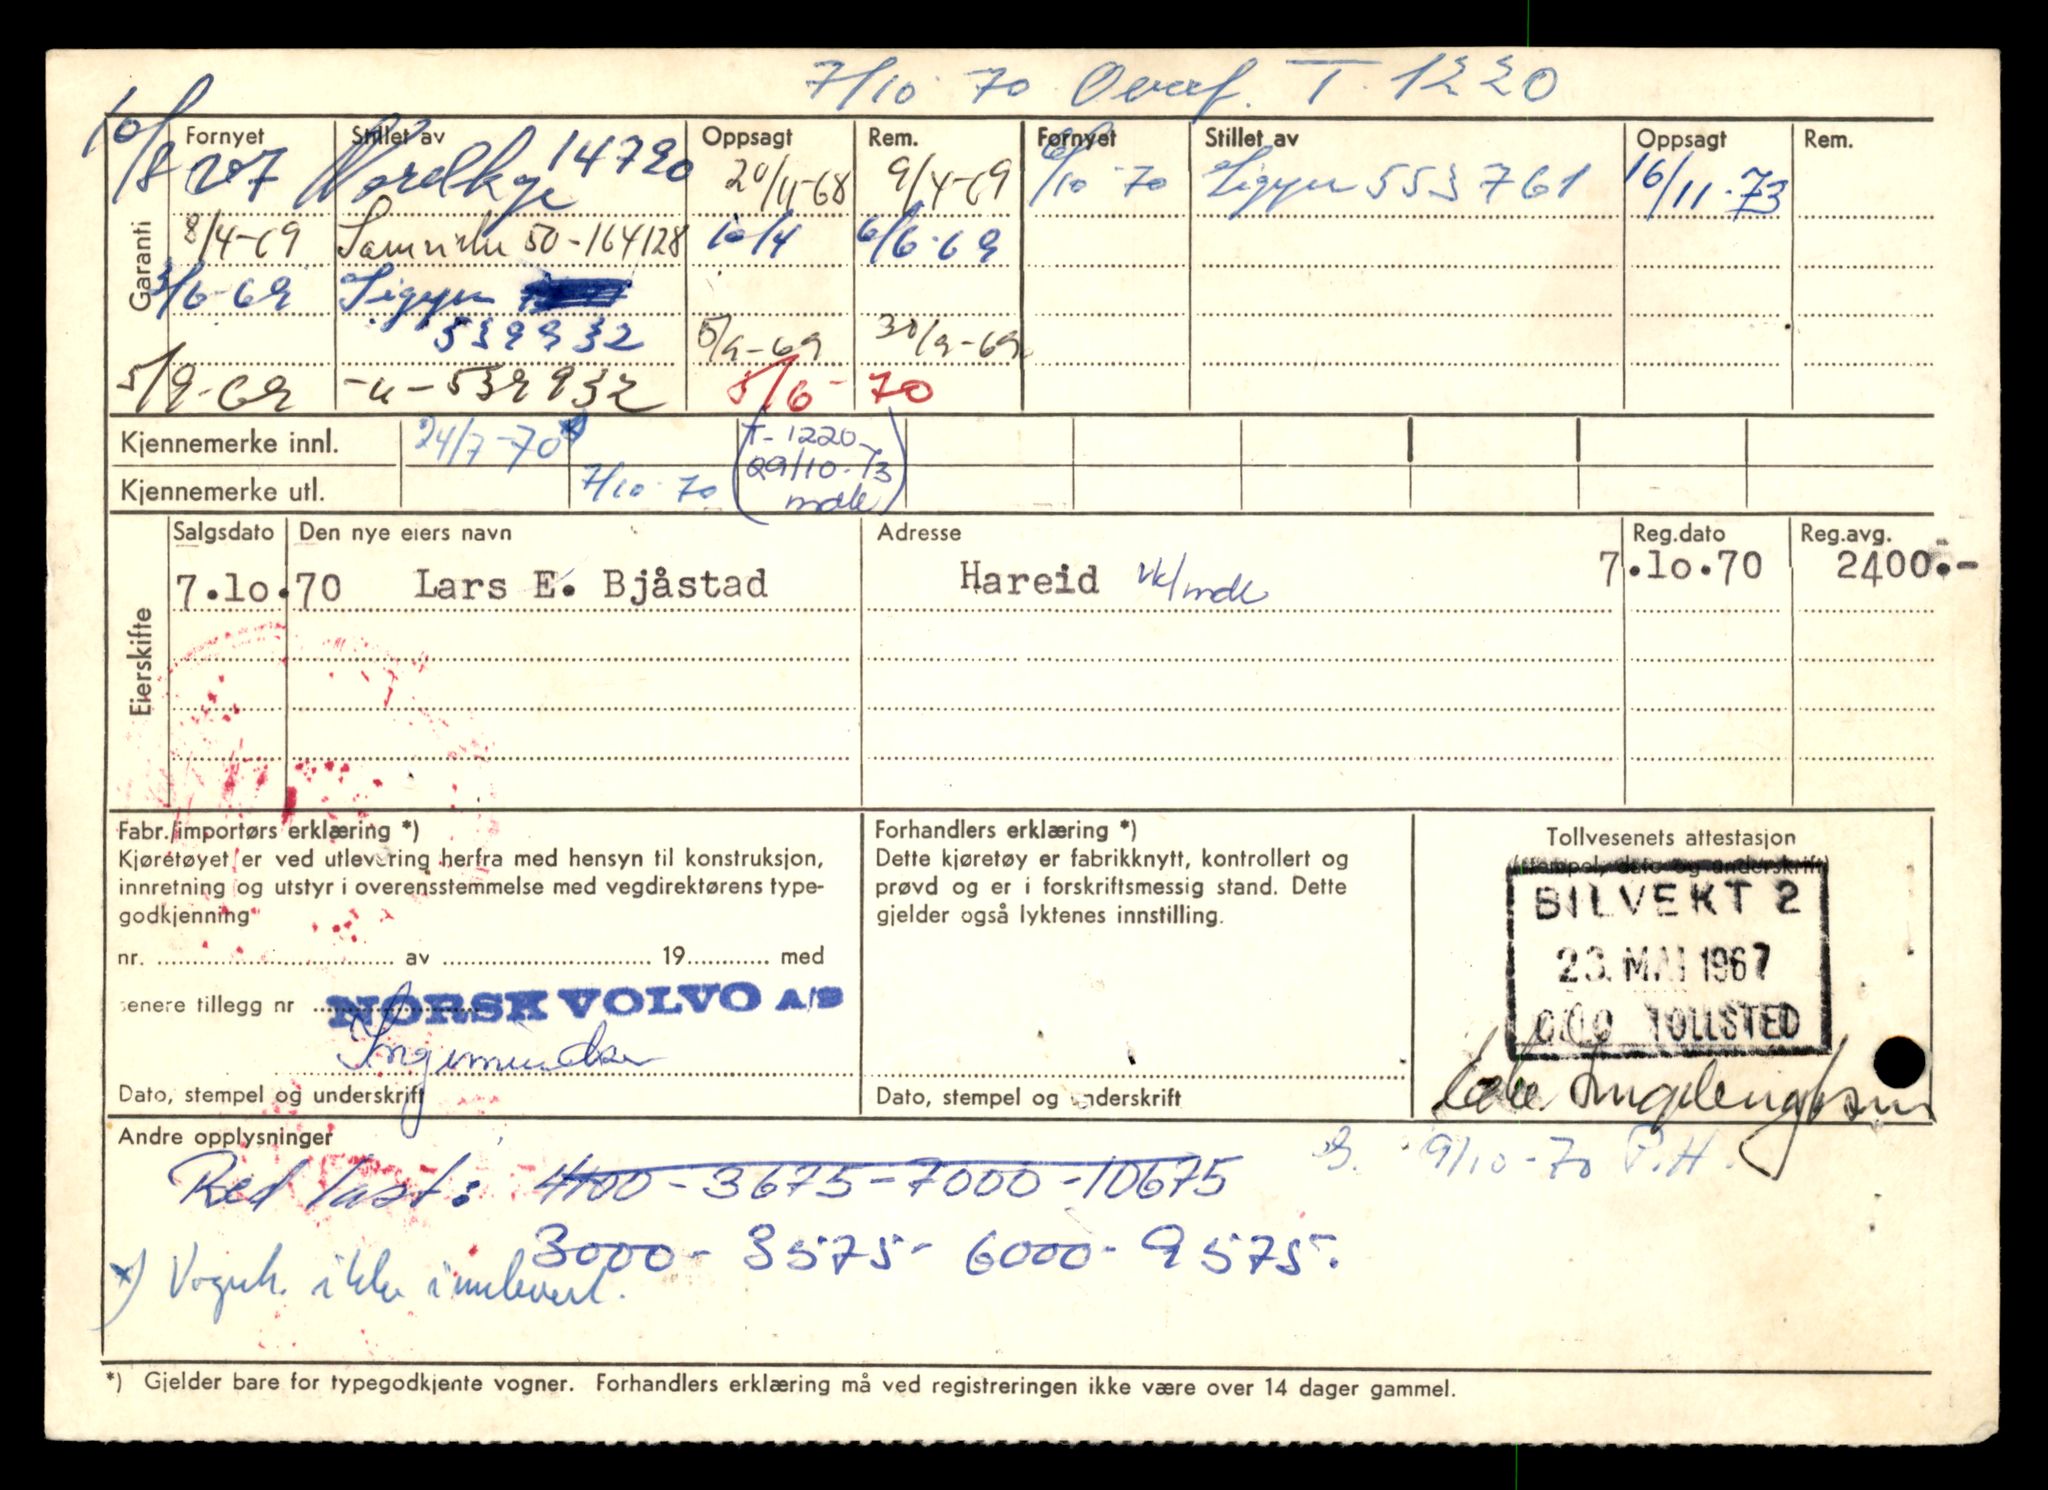 7/10 70 Overf. T. 1220
Fornyet Stillet av Oppsagt Rem. Fornyet Stillet av Oppsagt Rem.
10/8 Nordkye 14720 20/11-68 9/4-69 6/10-70 Sigyn 553761 16/11-73
Garanti
8/4-69 Samvirke 50-164128 10/4 6/6-69
3/6-69 Sigyn
539932 5/9-69 30/9-69
5/9-69 -u- 539932 5/6-70
Kjennemerke innl. 24/7-70 *) (T-1220
29/10-73
Kjennemerke utl. 7/10-70 mdk)
Salgsdato Den nye eiers navn Adresse Reg.dato Reg.avg.
7.lo.70 Lars E. Bjåstad Hareid vk/mdk 7.lo.70 2400.-
Eierskifte
Fabr./importørs erklæring *)
Kjøretøyet er ved utlevering herfra med hensyn til konstruksjon,
innretning og utstyr i overensstemmelse med vegdirektørens type-
godkjenning
nr. av 19 med
senere tillegg nr NORSK VOLVO A/S
Ingemundsen
Dato, stempel og underskrift
Forhandlers erklæring *)
Dette kjøretøy er fabrikknytt, kontrollert og
prøvd og er i forskriftsmessig stand. Dette
gjelder også lyktenes innstilling.
Dato, stempel og underskrift
Tollvesenets attestasjon
(stempel, dato og underskrift)
BILVEKT 2
23. MAI 1967
OSLO TOLLSTED
Andre opplysninger
B. 9/10-70 P.H.
Red last: 4100-3675-7000-10675
3000-3575-6000-9575.
*) Vognk. ikke innlevert.
*) Gjelder bare for typegodkjente vogner. Forhandlers erklæring må ved registreringen ikke være over 14 dager gammel.